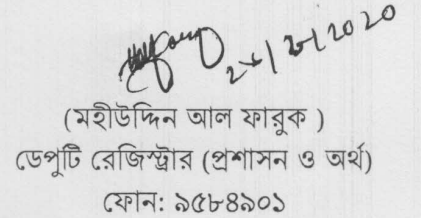 (মহীউদ্দিন আল ফারুক )
ডেপুটি রেজিস্ট্রার (প্রশাসন ও অর্থ)
ফোন: ৯৫৮৪৯০১